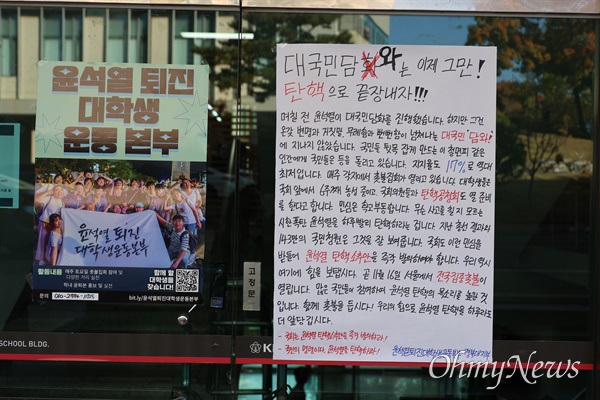 윤석열 퇴진
대학생
운동 본부
윤석열 퇴진
대학생운동본부
활동내용
매주 토요일 촛불집회 참여 및
다양한 거리 실천
학내 윤퇴본 홍보 및 실천
함께 할
대학생을
찾습니다!
문의
bit.ly/윤석열퇴진대학생운동본부
고정문
SCHOOL BLDG.
대국민담화와는 이제 그만!
탄핵으로 끝장내자!!!
며칠 전 윤석열이 대국민담화를 진행했습니다. 하지만 그건
온갖 변명과 거짓말, 무례함과 뻔뻔함이 넘쳐나는 대국민 '담와'
에 지나지 않았습니다. 국민들 뒷목 잡게 만드는 이 철면피 같은
인간에게 국민들은 등을 돌리고 있습니다. 지지율도 17%로 역대
최저입니다. 매주 각지에서 촛불집회가 열리고 있습니다. 대학생들은
국회 앞에서 농성 중이고, 국회의원들과 탄핵공청회도 열 준비
를 한다고 합니다. 민심은 요동칩니다. 무슨 사고를 칠 지 모르는
시한폭탄 윤석열을 하루빨리 탄핵하라는 겁니다. 지난 총선 결과와
143만의 국민청원은 그것을 잘 보여줍니다. 국회도 이런 민심을
받들어 윤석열 탄핵소추안을 즉각 발의해야 합니다. 우리 역시
여기에 힘을 보탭시다. 곧 11월 16일 서울에서 전국집중촛불이
열립니다. 많은 국민들이 참여하여 윤석열 탄핵의 목소리를 높일 것
입니다. 함께 촛불을 듭시다! 우리의 힘으로 윤석열 탄핵을 하루라도
더 앞당깁시다.
- 국회는 윤석열 탄핵소추안을 즉각 발의하라!
- 국민의 명령이다, 윤석열을 탄핵하라!
윤석열퇴진대학생운동본부
OhmyNews